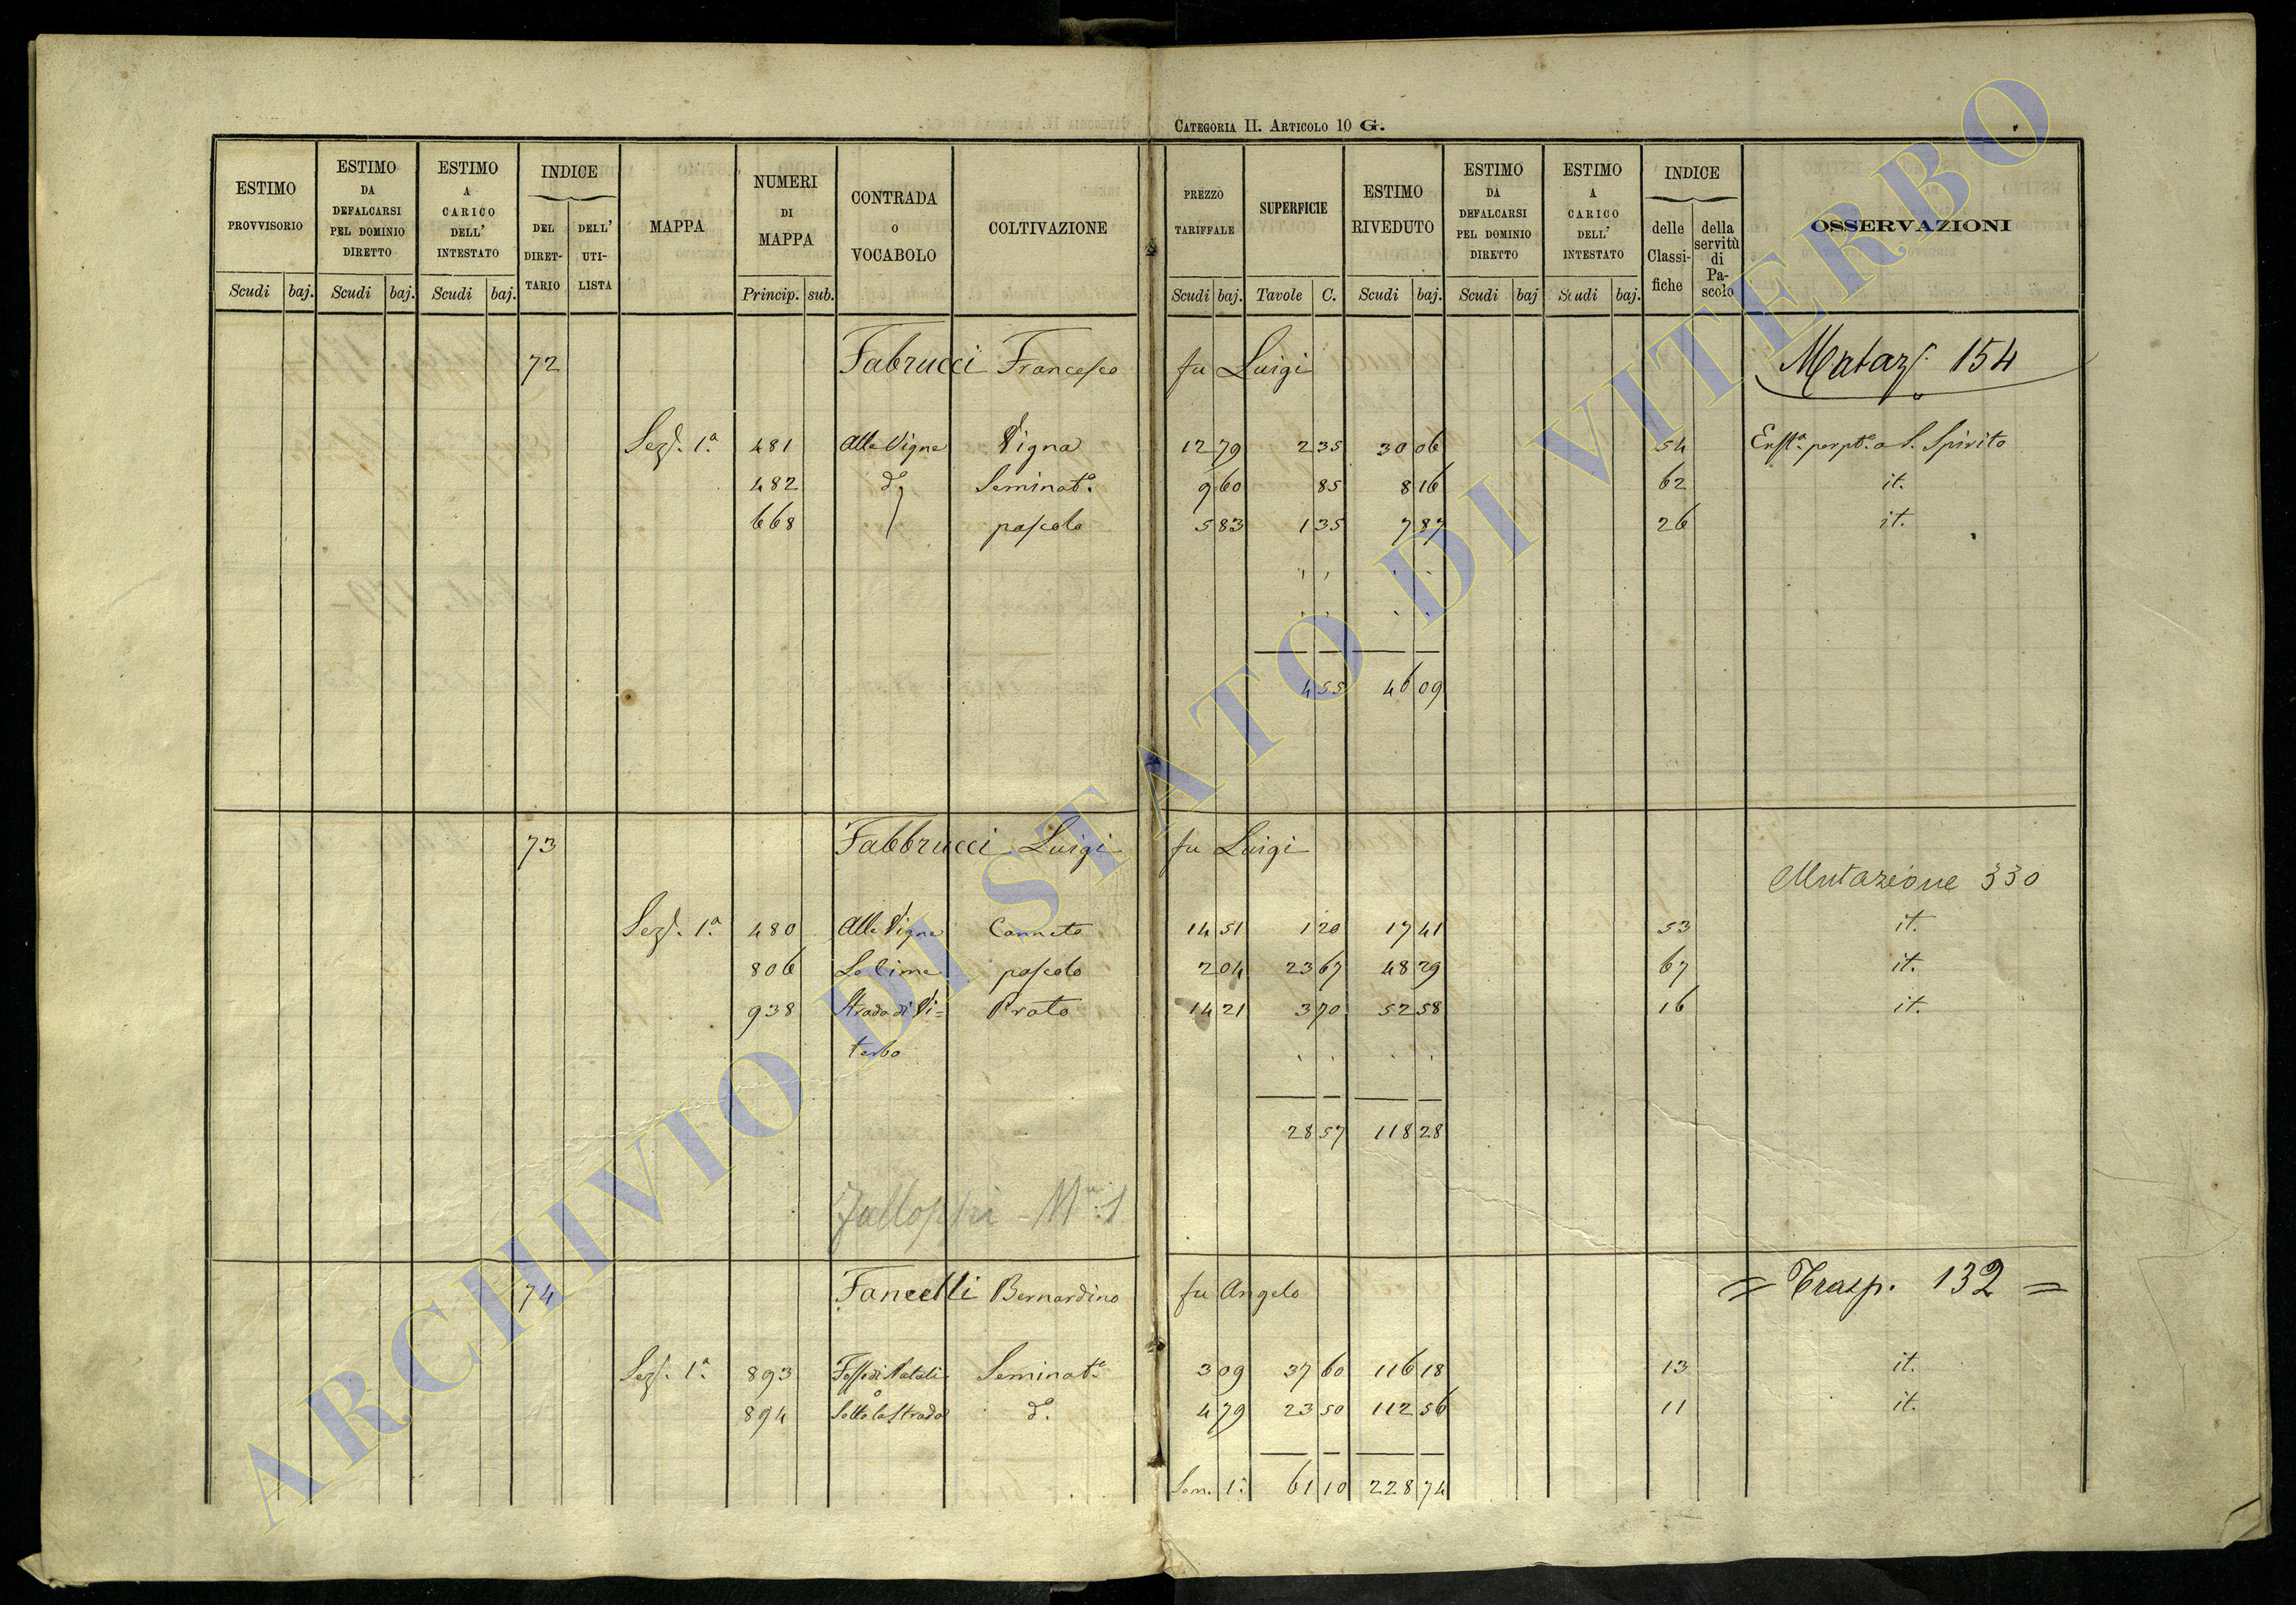 CATEGORIA II. ARTICOLO 10 G.
ESTIMO PROVVISORIO Scudi baj.
ESTIMO DA DEFALCARSI PEL DOMINIO DIRETTO Scudi baj.
ESTIMO A CARICO DELL' INTESTATO Scudi baj.
INDICE DEL DIRETTARIO DELL' UTILISTA
MAPPA
NUMERI DI MAPPA Princip. sub.
CONTRADA O VOCABOLO
COLTIVAZIONE
PREZZO TARIFFALE Scudi baj.
SUPERFICIE Tavole C.
ESTIMO RIVEDUTO Scudi baj.
ESTIMO DA DEFALCARSI PEL DOMINIO DIRETTO Scudi baj
ESTIMO A CARICO DELL' INTESTATO Scudi baj.
INDICE delle Classifiche della servitù di Pascolo
OSSERVAZIONI
72 Fabrucci Francesco fu Luigi 154
Sez. 1.a 481 Alle Vigne Vigna 12 79 2 35 30 06 54 Enfta. perpta. a S. Spirito
482 do. Seminato. 9 60 85 8 16 62 it.
668 pascolo 5 83 1 35 7 87 26 it.
4 55 46 09
73 Fabbrucci Luigi fu Luigi
Mutazione 330
Sez. 1.a 480 Alle Vigne Canneto 14 51 1 20 17 41 53 it.
806 Le Cime pascolo 2 04 23 67 48 29 67 it.
938 Strada di Vi= Prato 14 21 3 70 52 58 16 it.
terbo
28 57 118 28
74 Fancelli Bernardino fu Angelo = Trasp. 132 =
Sez. 1.a 893 Fosso di Natali Seminato. 3 09 37 60 116 18 13 it.
894 Sotto la Strada do. 4 79 23 50 112 56 11 it.
61 10 228 74
ARCHIVIO DI STATO DI VITERBO